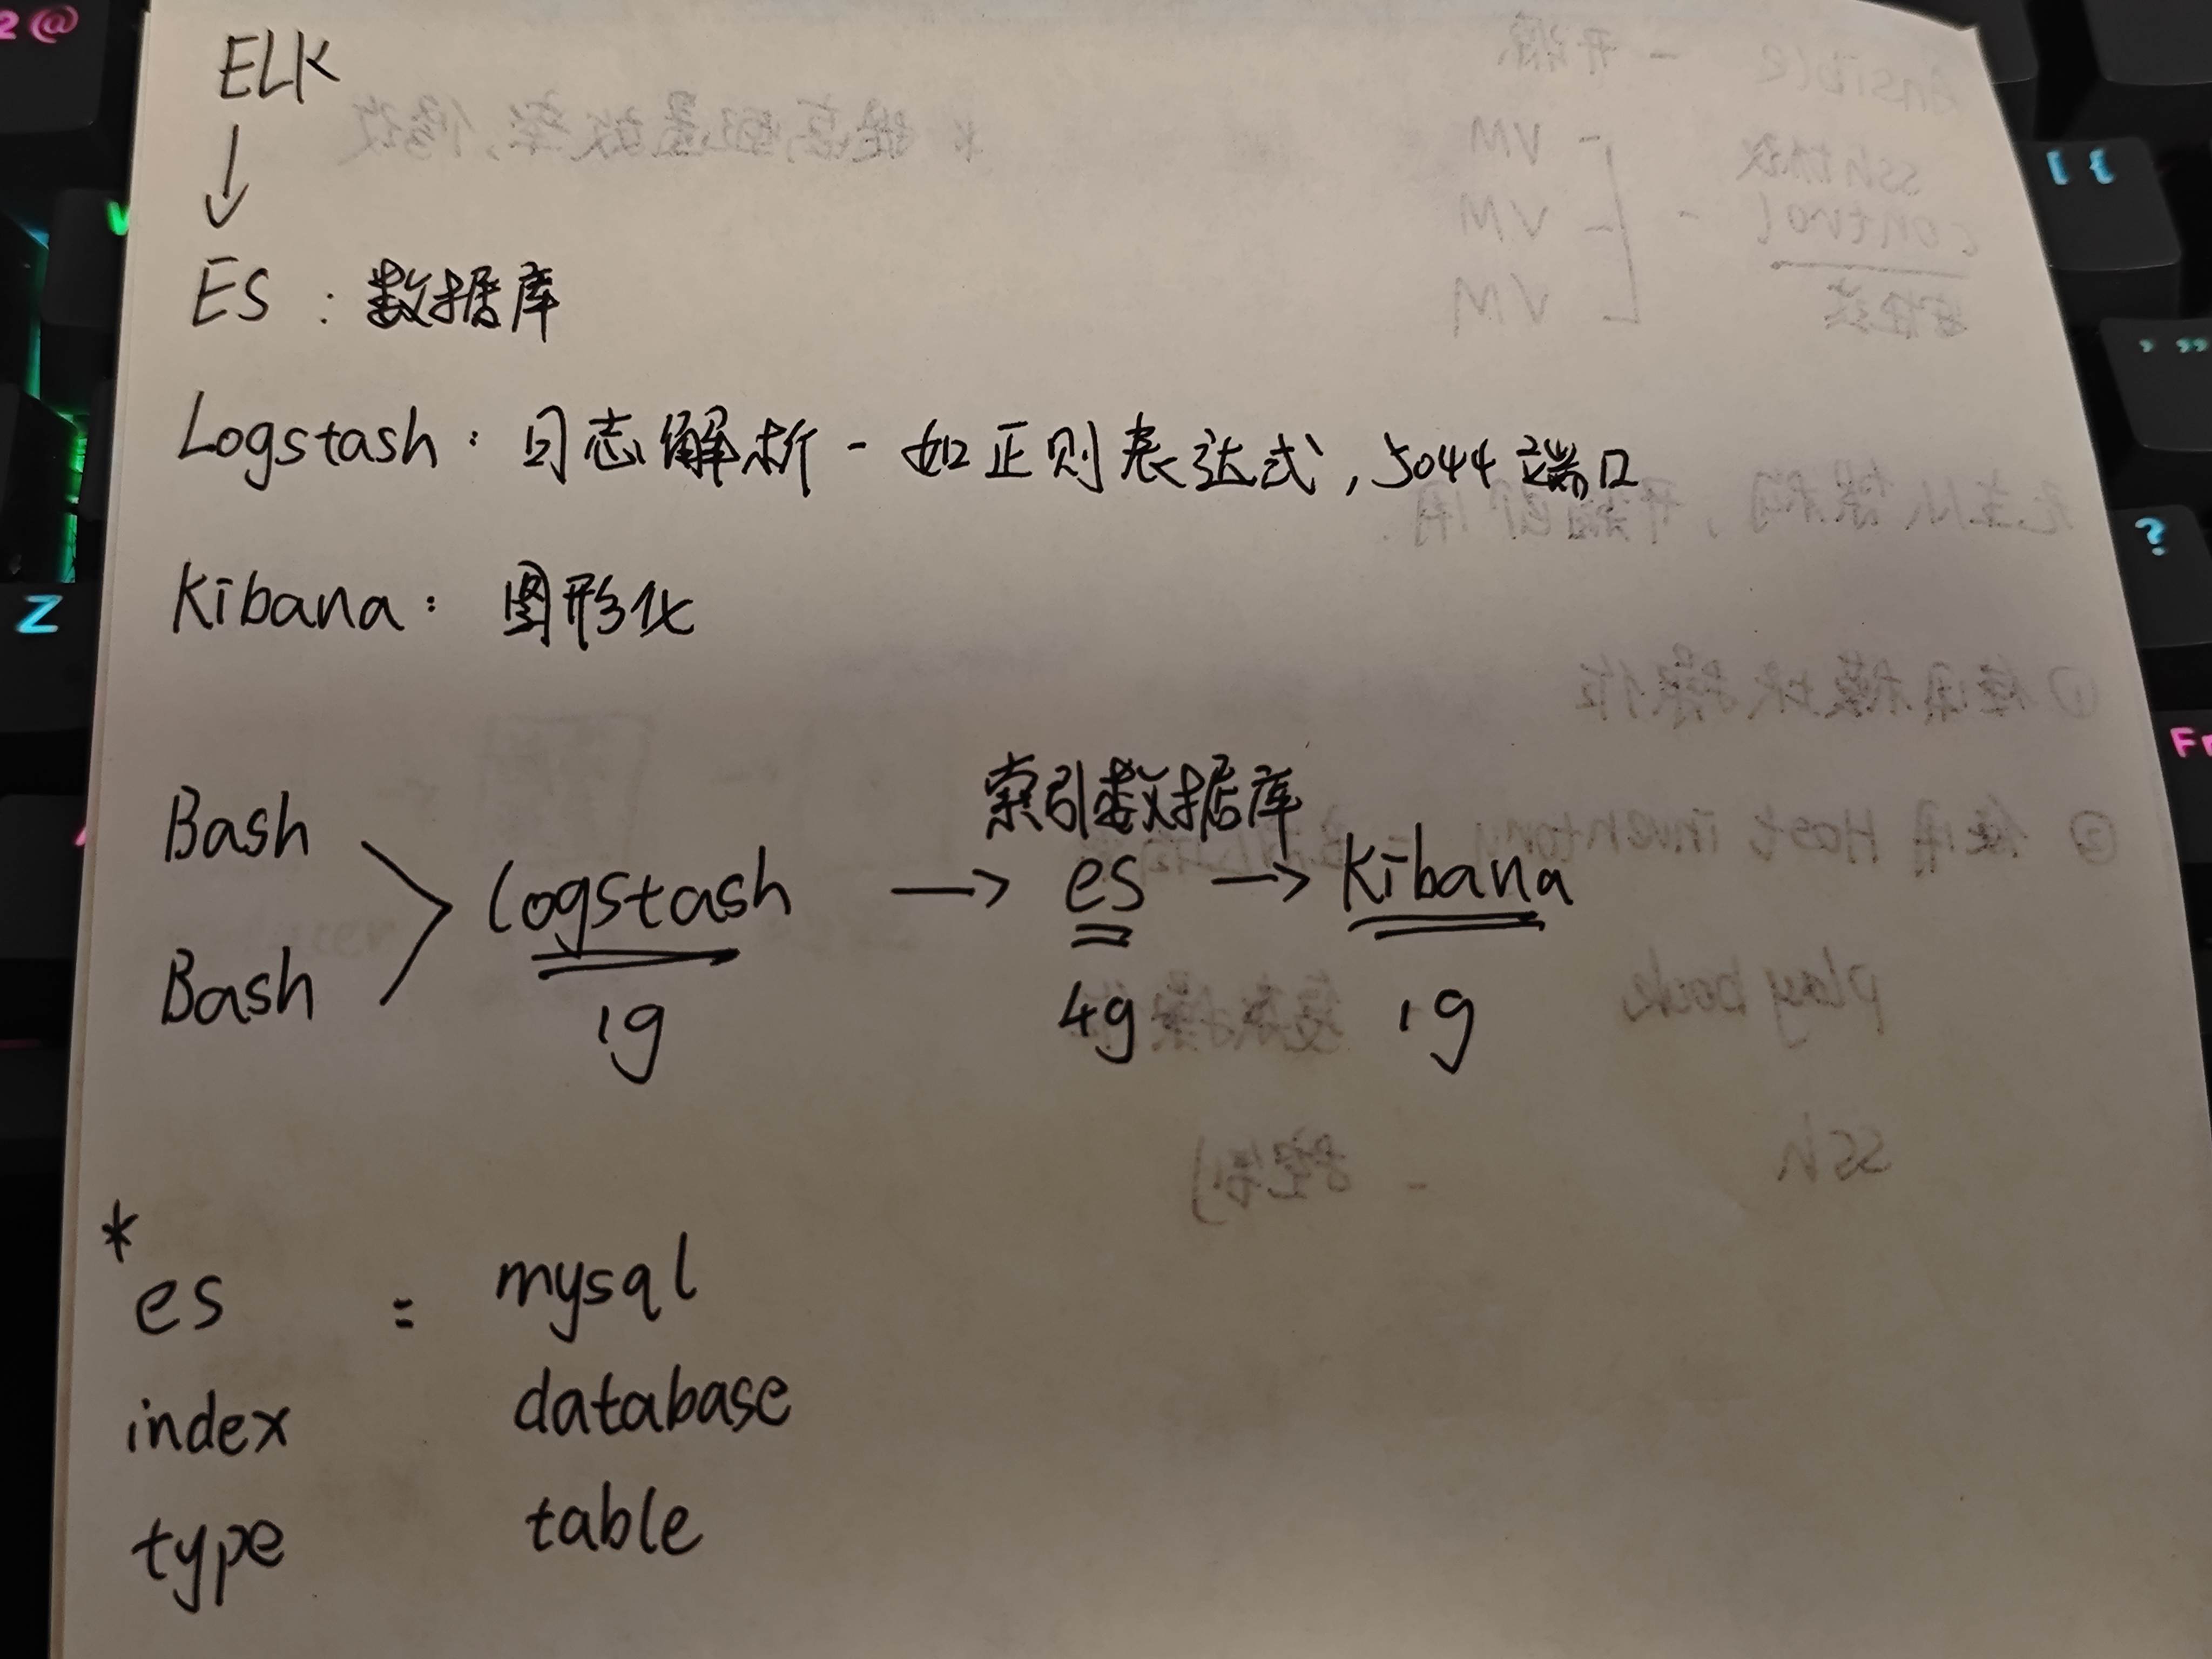 ELK
↓
ES : 数据库
Logstash : 日志解析 - 如正则表达式, 5044端口
Kibana : 图形化
索引数据库
Bash
logstash → es → kibana
Bash
1g 4g 1g
*
es = mysql
index database
type table